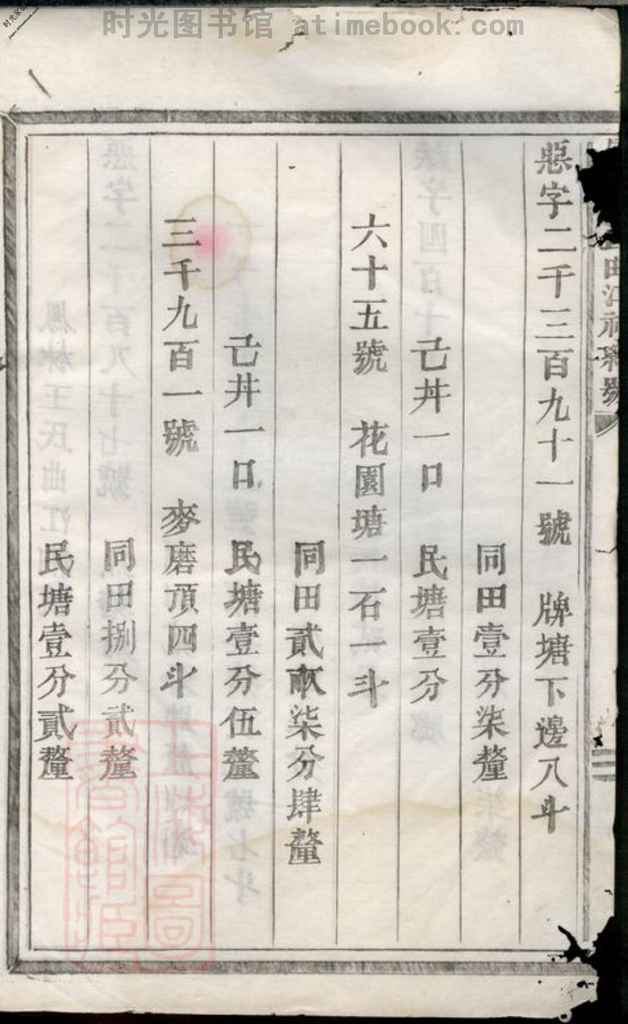 时光图书馆 atimebook.com
惡字二千三百九十一號 牌塘下邊八斗
同田壹分柒釐
己井一口 民塘壹分
六十五號 花園塘一石一斗
同田貳畝柒分肆釐
己井一口 民塘壹分伍釐
三千九百一號 麥磨頂四斗
同田捌分貳釐
民塘壹分貳釐